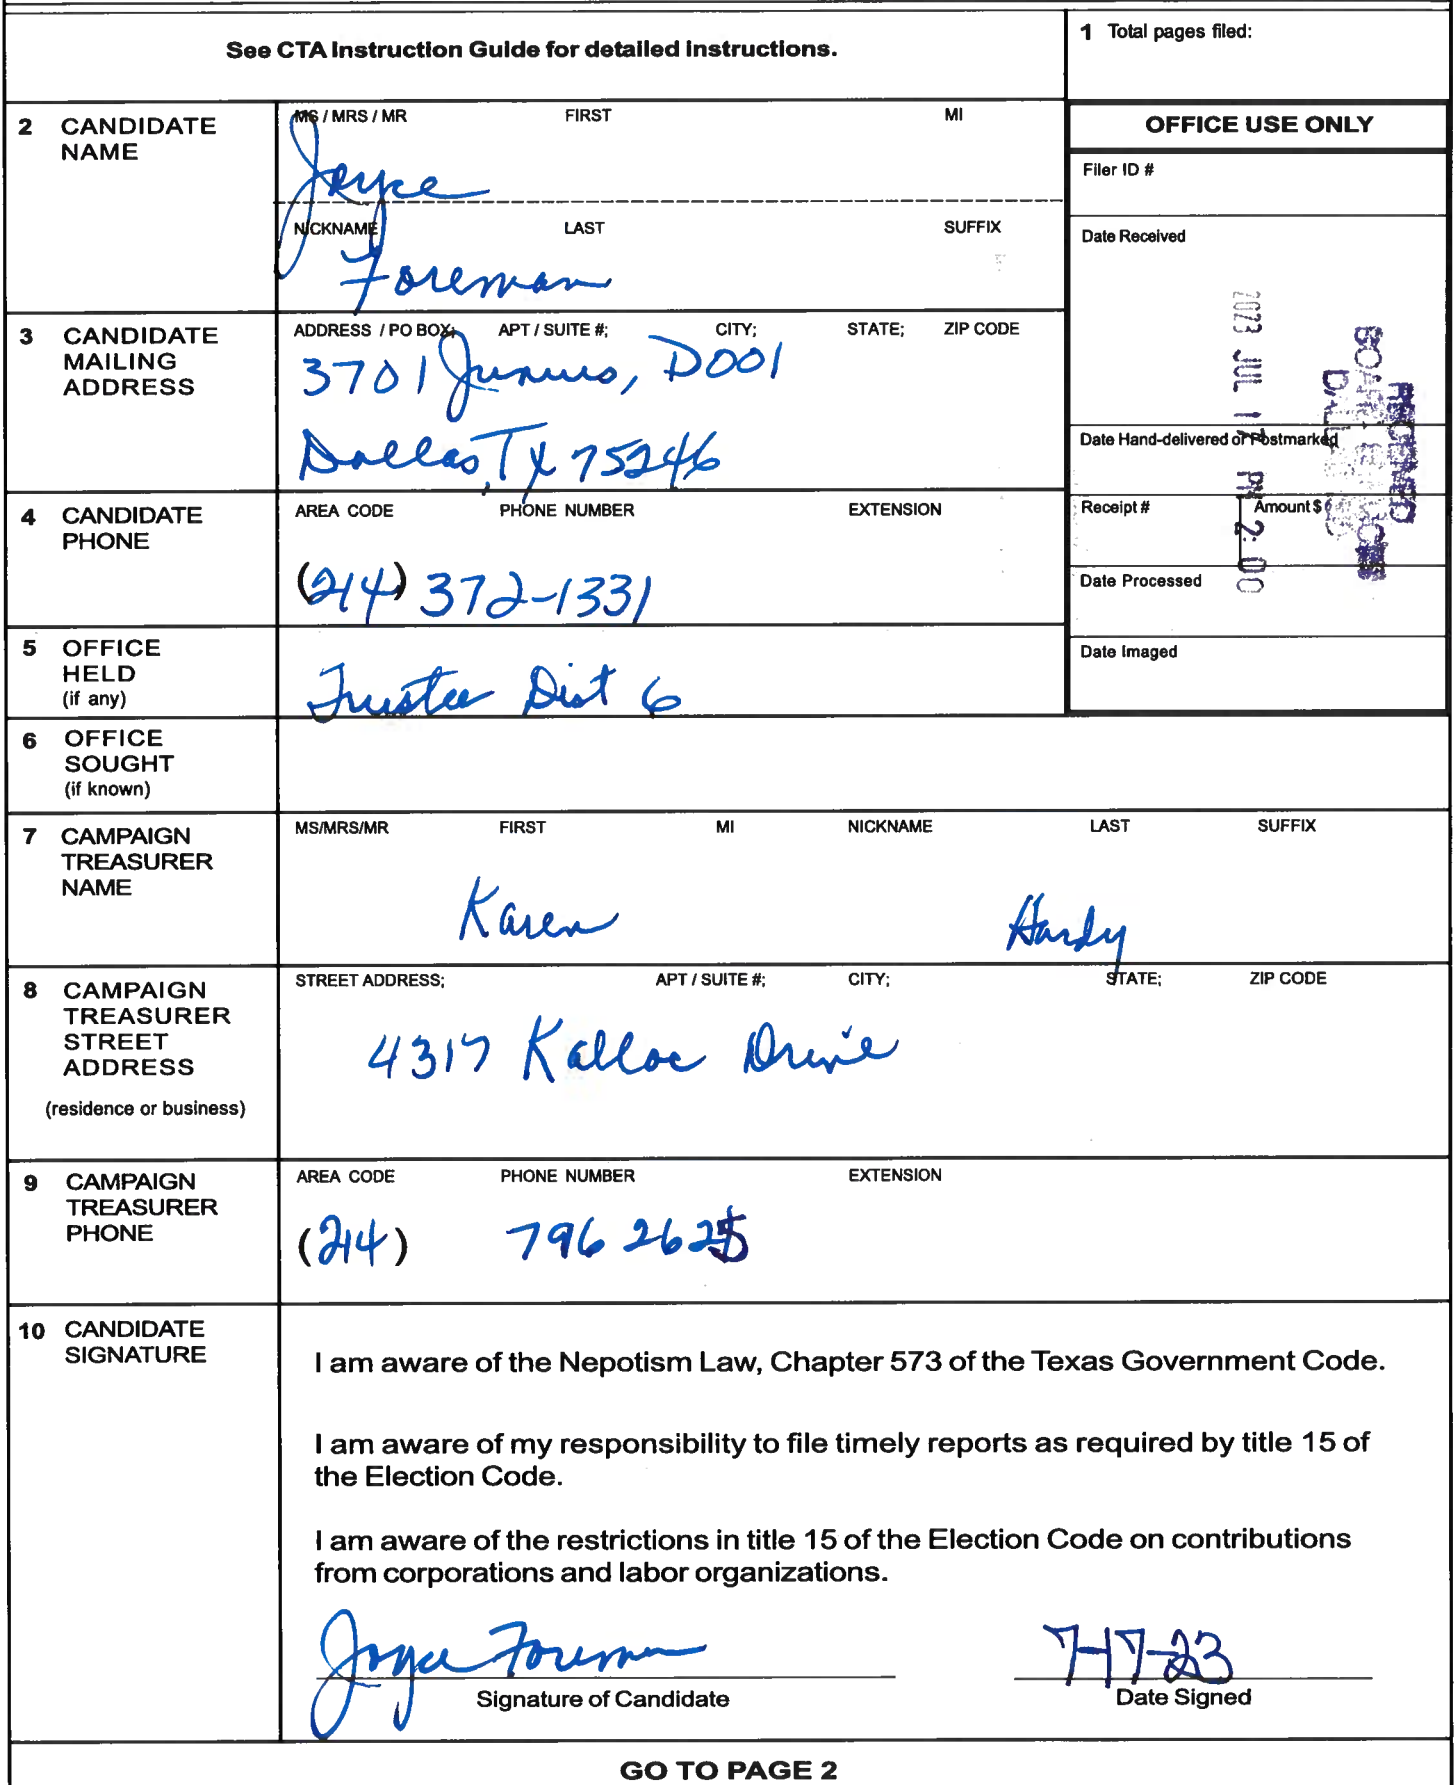 See CTA Instruction Guide for detailed instructions.
1 Total pages filed:
2 CANDIDATE NAME
MS / MRS / MR FIRST MI
Joyce
NICKNAME LAST SUFFIX
Foreman
OFFICE USE ONLY
Filer ID #
Date Received
2023 JUL 17 PM 2:00
RECEIVED
Date Hand-delivered or Postmarked
Receipt # Amount $
Date Processed
Date Imaged
3 CANDIDATE MAILING ADDRESS
ADDRESS / PO BOX; APT / SUITE #; CITY; STATE; ZIP CODE
3701 Junius, D001
Dallas, TX 75246
4 CANDIDATE PHONE
AREA CODE PHONE NUMBER EXTENSION
(214) 372-1331
5 OFFICE HELD (if any)
Trustee Dist 6
6 OFFICE SOUGHT (if known)
7 CAMPAIGN TREASURER NAME
MS/MRS/MR FIRST MI NICKNAME LAST SUFFIX
Karen Hardy
8 CAMPAIGN TREASURER STREET ADDRESS
(residence or business)
STREET ADDRESS; APT / SUITE #; CITY; STATE; ZIP CODE
4317 Kalloc Drive
9 CAMPAIGN TREASURER PHONE
AREA CODE PHONE NUMBER EXTENSION
(214) 796 2625
10 CANDIDATE SIGNATURE
I am aware of the Nepotism Law, Chapter 573 of the Texas Government Code.
I am aware of my responsibility to file timely reports as required by title 15 of
the Election Code.
I am aware of the restrictions in title 15 of the Election Code on contributions
from corporations and labor organizations.
Joyce Foreman
7-17-23
Signature of Candidate Date Signed
GO TO PAGE 2